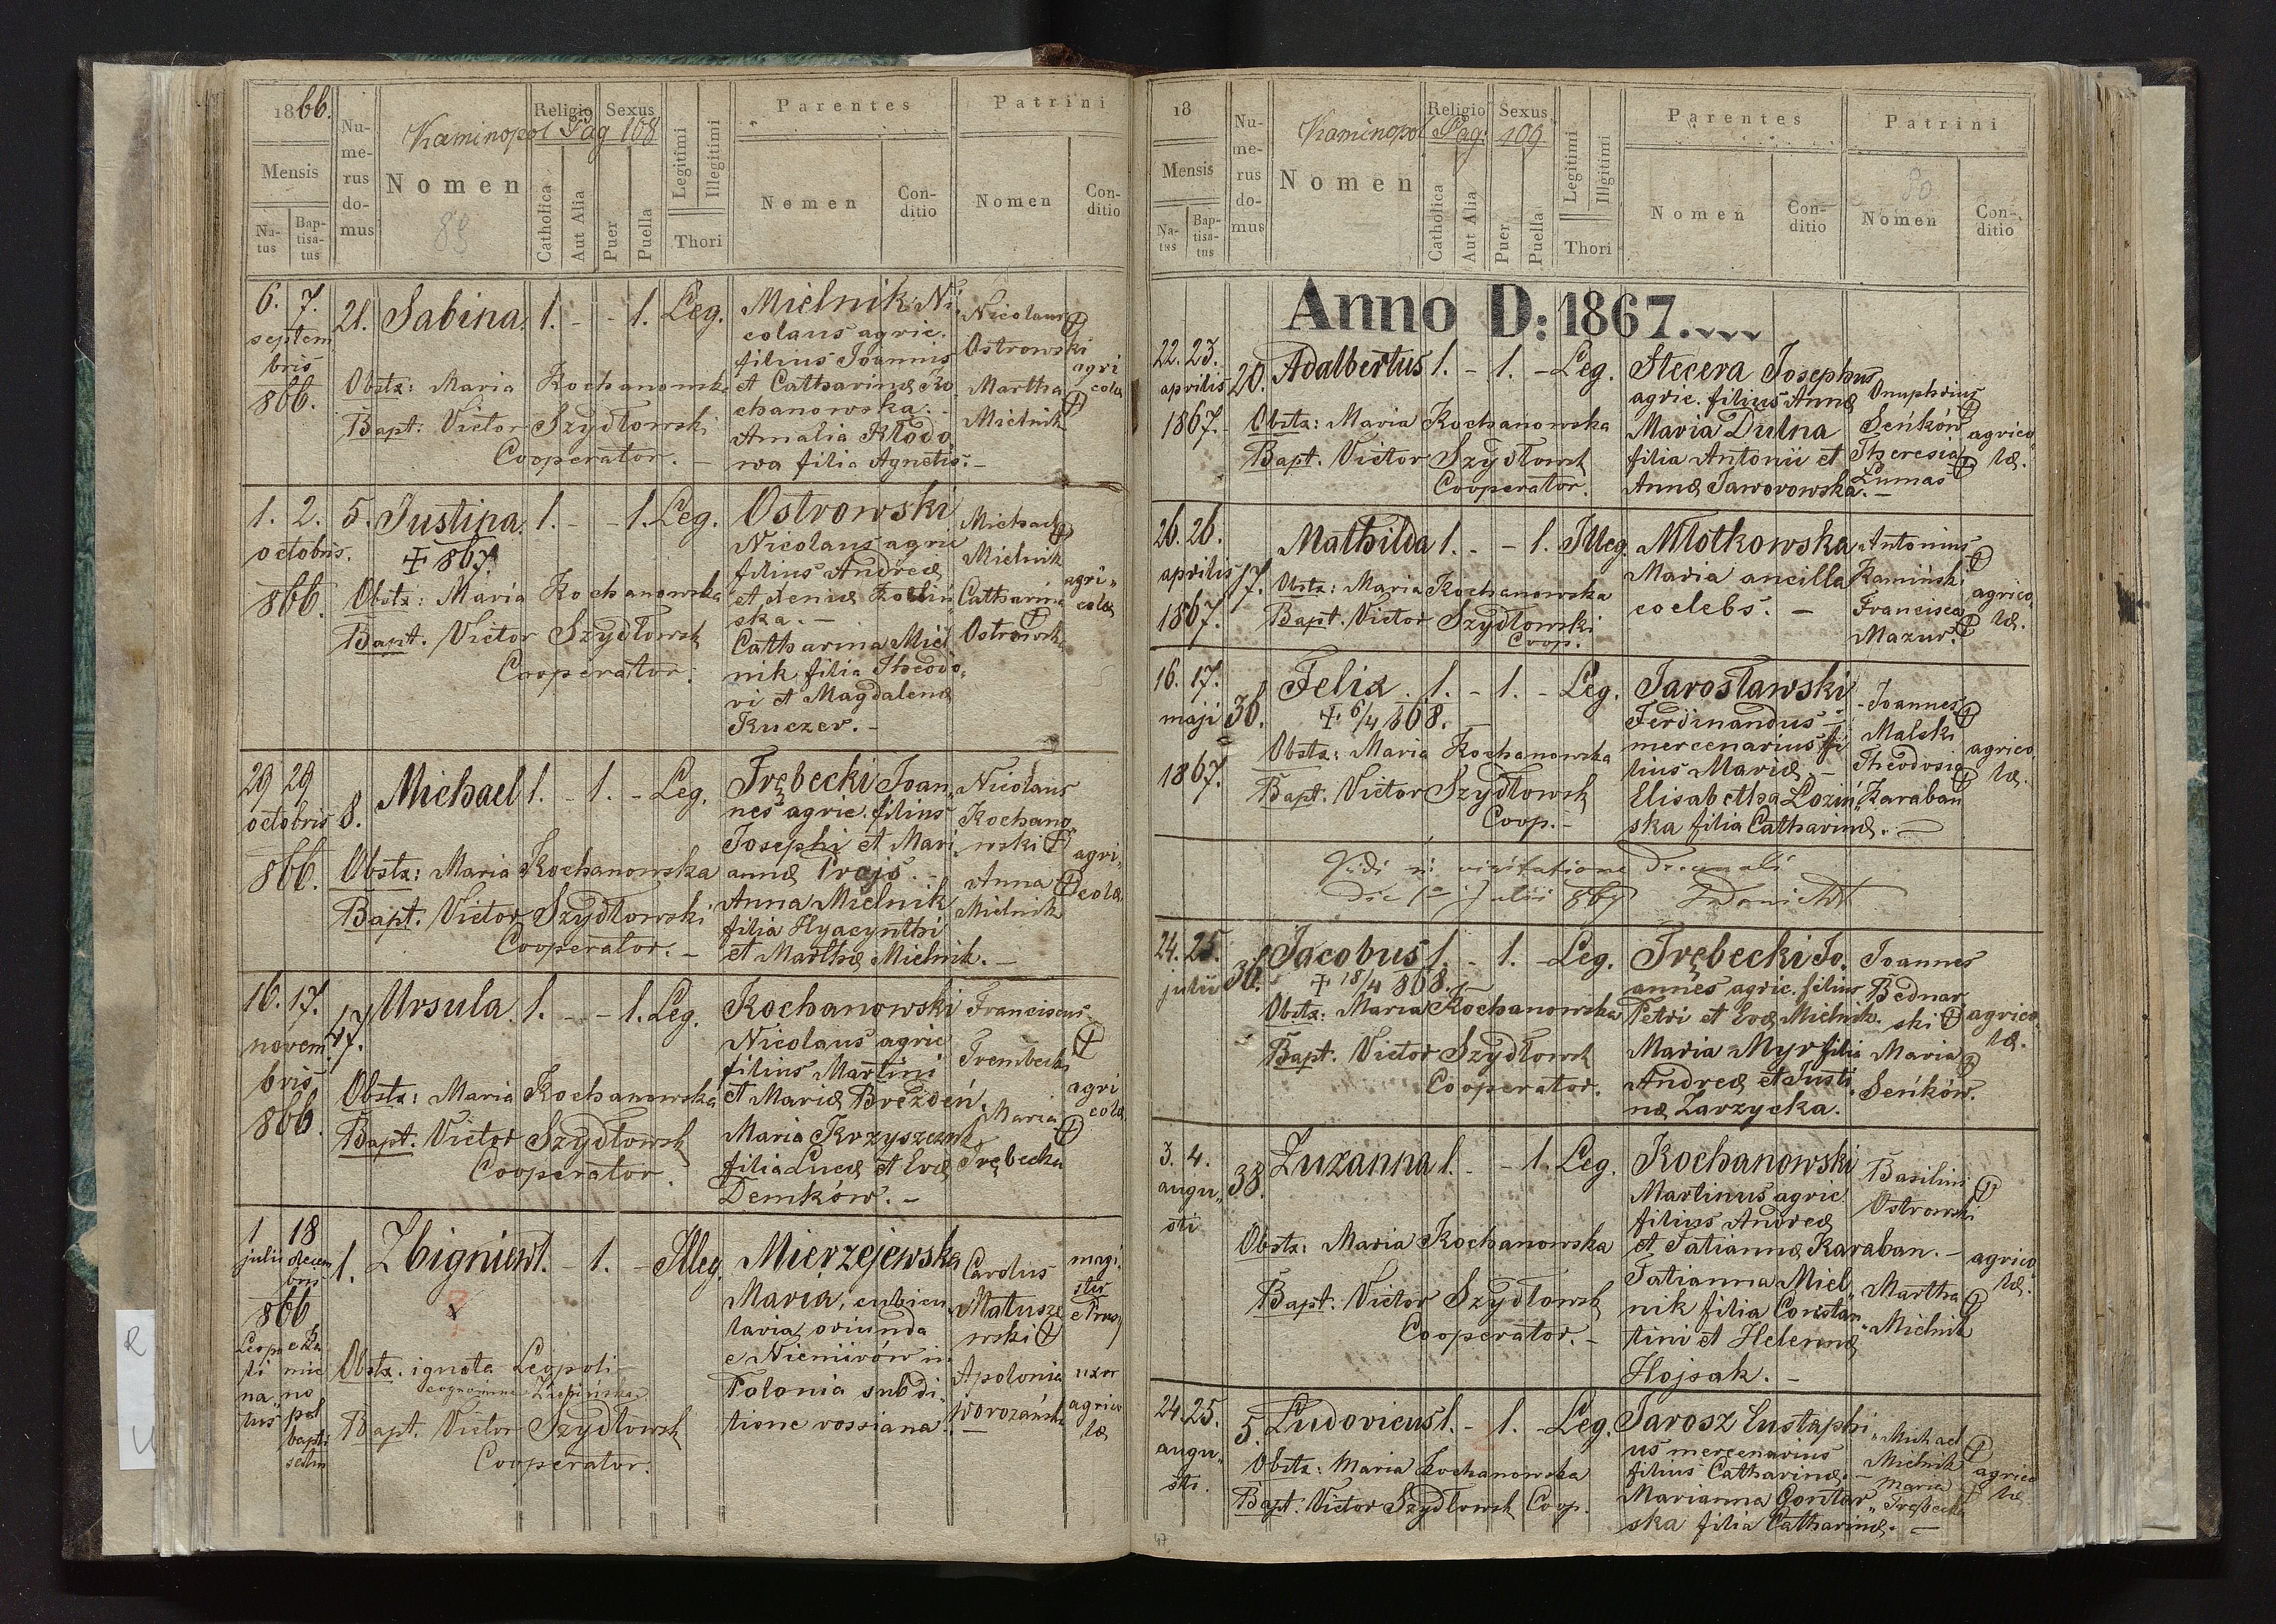 1866.
Mensis
Na-
tus
Bap-
tisa-
tus
Nu-
me-
rus
do-
mus
Kaminopol Pag 108
Nomen
89
Religio
Catholica
Aut Alia
Sexus
Puer
Puella
Legitimi
Illegitimi
Thori
Parentes
Nomen
Con-
ditio
Patrini
Nomen
Con-
ditio
6. 7.
septem
bris
866.
21. Sabina 1. - - 1. Leg.
Obstx: Maria Kochanowska
Bapt: Victor Szydłowski
Cooperator. -
Mielnik Ni
colaus agric.
filius Joannis
et Catharinæ Ko
chanowska. -
Amalia Kłodo
wa filia Agnetis. -
Nicolaus
Ostrowski
Martha
Mielnik
agri
colæ
1. 2.
octobris.
866.
5. Justina 1. - - 1. Leg.
+ 867.
Obstx: Maria Kochanowska
Bapt. Victor Szydłowsk
Cooperator.
Ostrowski
Nicolaus agric
filius Andreæ
ska. -
Catharina Miel
nik filia Theodo
ri et Magdalenæ
Kuczer. -
Michael
Mielnik
Catharina
Ostrowska
agri"
colæ
29 29
octobris
866.
8. Michael 1. - 1. - Leg.
Obstx: Maria Kochanowska
Bapt. Victor Szydłowski
Cooperator. -
Trębecki Joan
nes agric. filius
Josephi et Mari
annæ Projs. -
Anna Mielnik
filia Hyacynthi
et Marthæ Mielnik. -
Nicolaus
Kochano
wski
Anna
Mielnik
agri"
colæ
16. 17.
novem
bris
866.
47. Ursula 1. - - 1. Leg.
Obstx: Maria Kochanowska
Bapt. Victor Szydłowsk
Cooperator.
Kochanowski
Nicolaus agric
filius Martini
et Mariæ Brezdeń
Maria Krzyszczuk
filia Lucæ et Evæ
Demków. -
Franciscus
Trembecki
Maria
Trębecka
agri
colæ
1 18
julii decem
bris
866
Leopo
li
na"
tus
e Ka
mie
no
pol
bapti
satus
1. Zbigniew 1. - 1. - Illeg.
Obstx. ignota Leopoli
cognomine
Bapt. Victor Szydłowsk
Cooperator.
Mierzejewska
Maria, cubicu
laria, oriunda
e Niemirów in
Polonia subdi
tione rossiana.
Carolus
Matusze
wski
Apolonia
Worozańska
magi
uxor
agrico
læ
18
Mensis
Na-
tus
Bap-
tisa-
tus
Nu-
me-
rus
do-
mus
Kaminopol Pag: 109
Nomen
Religio
Catholica
Aut Alia
Sexus
Puer
Puella
Legitimi
Illgitimi
Thori
Parentes
Nomen
Con-
ditio
Patrini
90
Nomen
Con-
ditio
Anno D: 1867.
22. 23.
aprilis
1867.
20. Adalbertus 1. - 1. - Leg.
Obstx: Maria Kochanowska
Bapt. Victor Szydłowsk
Cooperator.
Stecera Josephus
agric. filius Annæ
Maria Dulna
filia Antonii et
Annæ Jaworowska. -
Onuphrius
Seńków
Theresia
Lumas
agrico"
læ.
26. 26.
aprilis
1867.
17. Mathilda 1. - - 1. Illeg.
Obstx: Maria Kochanowska
Bapt. Victor Szydłowski
Coop.
Młotkowska
Maria ancilla
coelebs. -
Antonius
Kamiński
Francisca
Mazur.
agrico"
læ.
16. 17.
maji
1867.
36. Felix. 1. - 1. - Leg.
+ 6/4 868. -
Obstx: Maria Kochanowska
Bapt. Victor Szydłowsk
Coop. -
Jarosławski
Ferdinandus
mercenarius fi
lius Mariæ. -
Elisabetha Łoziń"
ska filia Catharinæ. -
Joannes
Malski
Theodosia
Karaban
agrico
læ.
Vidi in visitatione Decanali
die 1a Julii 867
24. 25.
julii
36. Jacobus 1. - 1. - Leg.
+ 18/4 868.
Obstx: Maria Kochanowska
Bapt. Victor Szydłowsk
Cooperator.
Trębecki Jo.
annes agric. filius
Petri et Evæ Mielnik.
Maria Myr filia
Andreæ et Justi
næ Zarzycka.
Joannes
Bednar
ski
Maria
Seńków.
agrico"
læ.
3. 4.
augu"
sti
38. Zuzanna 1. - - 1. Leg.
Obstx: Maria Kochanowska
Bapt. Victor Szydłowsk
Cooperator. -
Kochanowski
Martinus agric
filius Andreæ
et Tatiannæ Karaban. -
Tatianna Miel"
nik filia Constan
tini et Helennæ
Hojsak. -
Basilius
Ostrowski
Martha
Mielnik
agrico
læ.
24. 25.
augu"
sti.
5. Ludovicus 1. - 1. - Leg.
Obstx: Maria Kochanowska
Bapt. Victor Szydłowsk Coop.
Jarosz Eustaphi
us mercenarius
filius Catharinæ. -
Marianna Gontar"
ska filia Catharinæ. -
Michael
Mielnik
Maria
Trębecka
agrico
læ